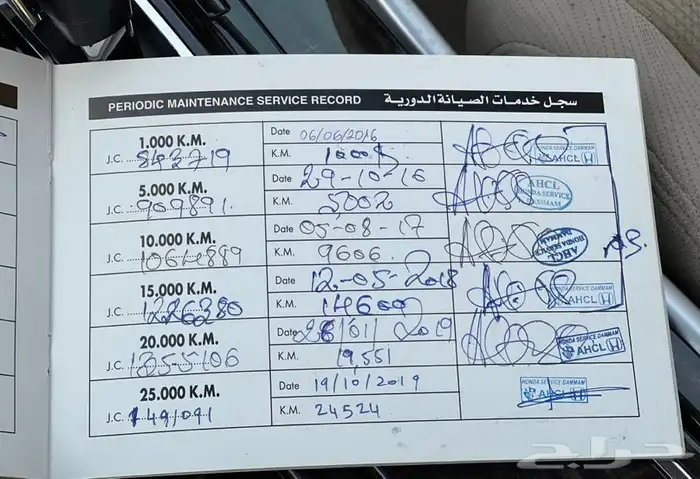 PERIODIC MAINTENANCE SERVICE RECORD سجل خدمات الصيانة الدورية
1.000 K.M.
J.C. 843719
Date 06/06/2016
K.M. 1000
HONDA SERVICE DAMMAM
AHCL
5.000 K.M.
J.C. 909891
Date 29-10-16
K.M. 5002
AHCL
HONDA SERVICE
DAMMAM
10.000 K.M.
J.C. 1064889
Date 05-08-17
K.M. 9606
AHCL
HONDA SERVICE
DAMMAM
15.000 K.M.
J.C. 1226380
Date 12-05-2018
K.M. 14600
HONDA SERVICE DAMMAM
AHCL
20.000 K.M.
J.C. 1355106
Date 26/01/2019
K.M. 19,551
HONDA SERVICE DAMMAM
AHCL
25.000 K.M.
J.C. 1491091
Date 19/10/2019
K.M. 24524
HONDA SERVICE DAMMAM
AHCL
حراج